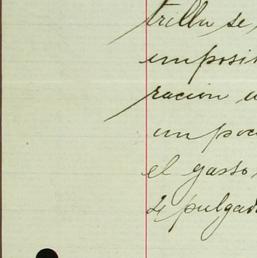 trilla se
imposi
racion u
un poc
el gasto
de pulgad